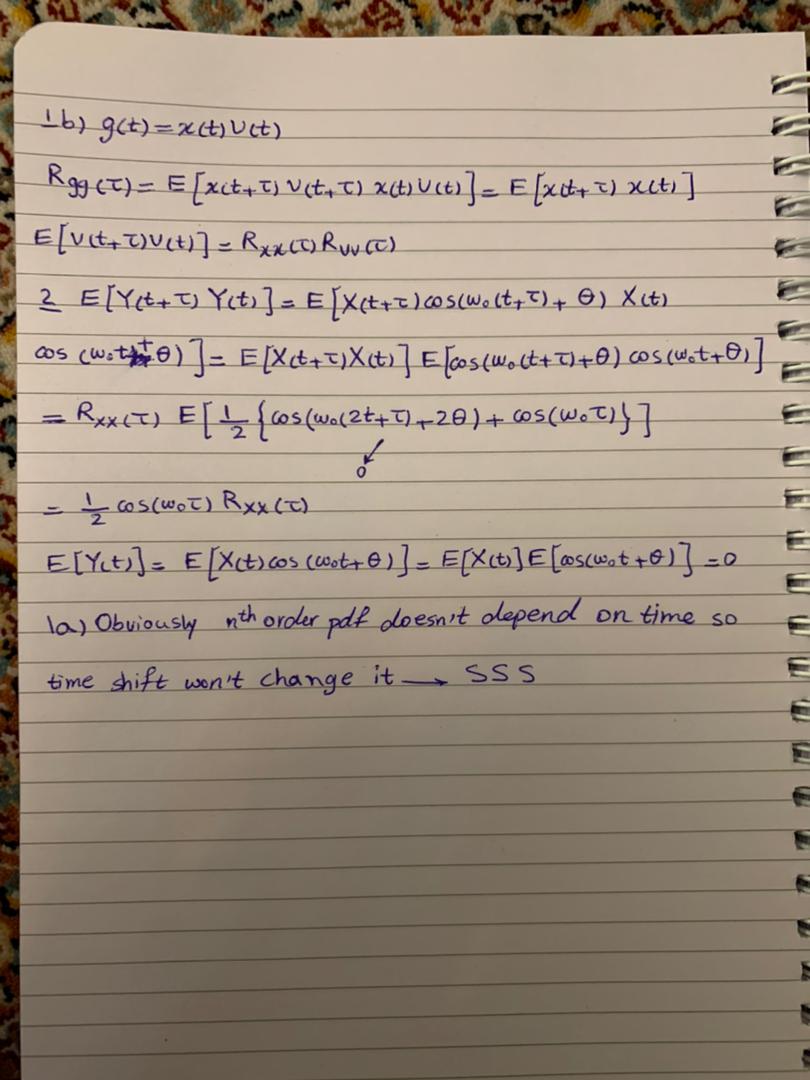 1b) g(t)=x(t)V(t)
Rgg(τ)= E[x(t+τ) V(t+τ) x(t)V(t)]= E[x(t+τ) x(t)]
E[V(t+τ)V(t)]= Rxx(τ)Rvv(τ)
2 E[Y(t+τ) Y(t)]= E[X(t+τ)cos(ω₀(t+τ)+ θ) X(t)
cos (ω₀t+θ)]= E[X(t+τ)X(t)] E[cos(ω₀(t+τ)+θ) cos(ω₀t+θ)]
= Rxx(τ) E[1/2 {cos(ω₀(2t+τ)+2θ)+ cos(ω₀τ)}]
0
= 1/2 cos(ω₀τ) Rxx(τ)
E[Y(t)]= E[X(t)cos (ω₀t+θ)]= E[X(t)]E[cos(ω₀t+θ)] =0
1a) Obviously nth order pdf doesn't depend on time so
time shift won't change it → SSS